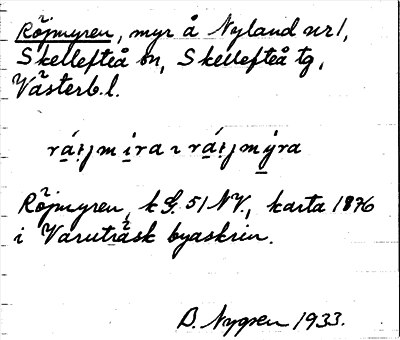 Röjmyren, myr å Nyland nr 1,
Skellefteå sn, Skellefteå tg,
Västerb. l.
Röjmyren, k S. 51 NV., karta 1876
i Varuträsk byaskrin.
B. Nygren 1933.